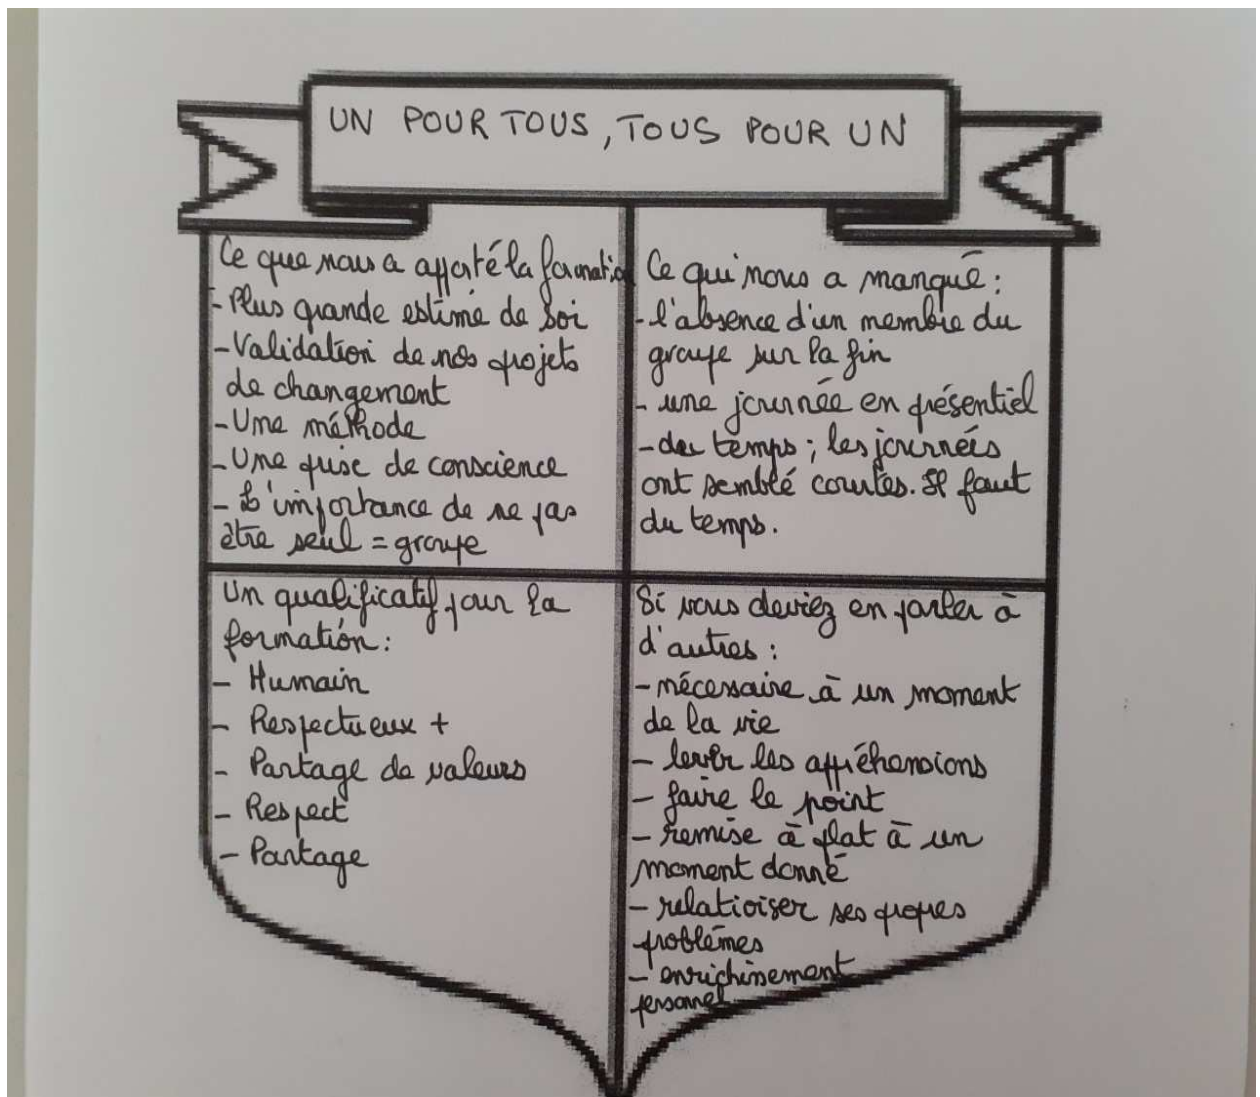 UN POUR TOUS, TOUS POUR UN
Ce que nous a apporté la formation
- Plus grande estime de soi
- Validation de nos projets
de changement
- Une méthode
- Une prise de conscience
- L'importance de ne pas
être seul = groupe
Ce qui nous a manqué :
- l'absence d'un membre du
groupe sur la fin
- une journée en présentiel
- du temps ; les journées
ont semblé courtes. Il faut
du temps.
Un qualificatif pour la
formation :
- Humain
- Respectueux +
- Partage de valeurs
- Respect
- Partage
Si vous deviez en parler à
d'autres :
- nécessaire à un moment
de la vie
- lever les appréhensions
- faire le point
- remise à plat à un
moment donné
- relativiser ses propres
problèmes
- enrichissement
personnel